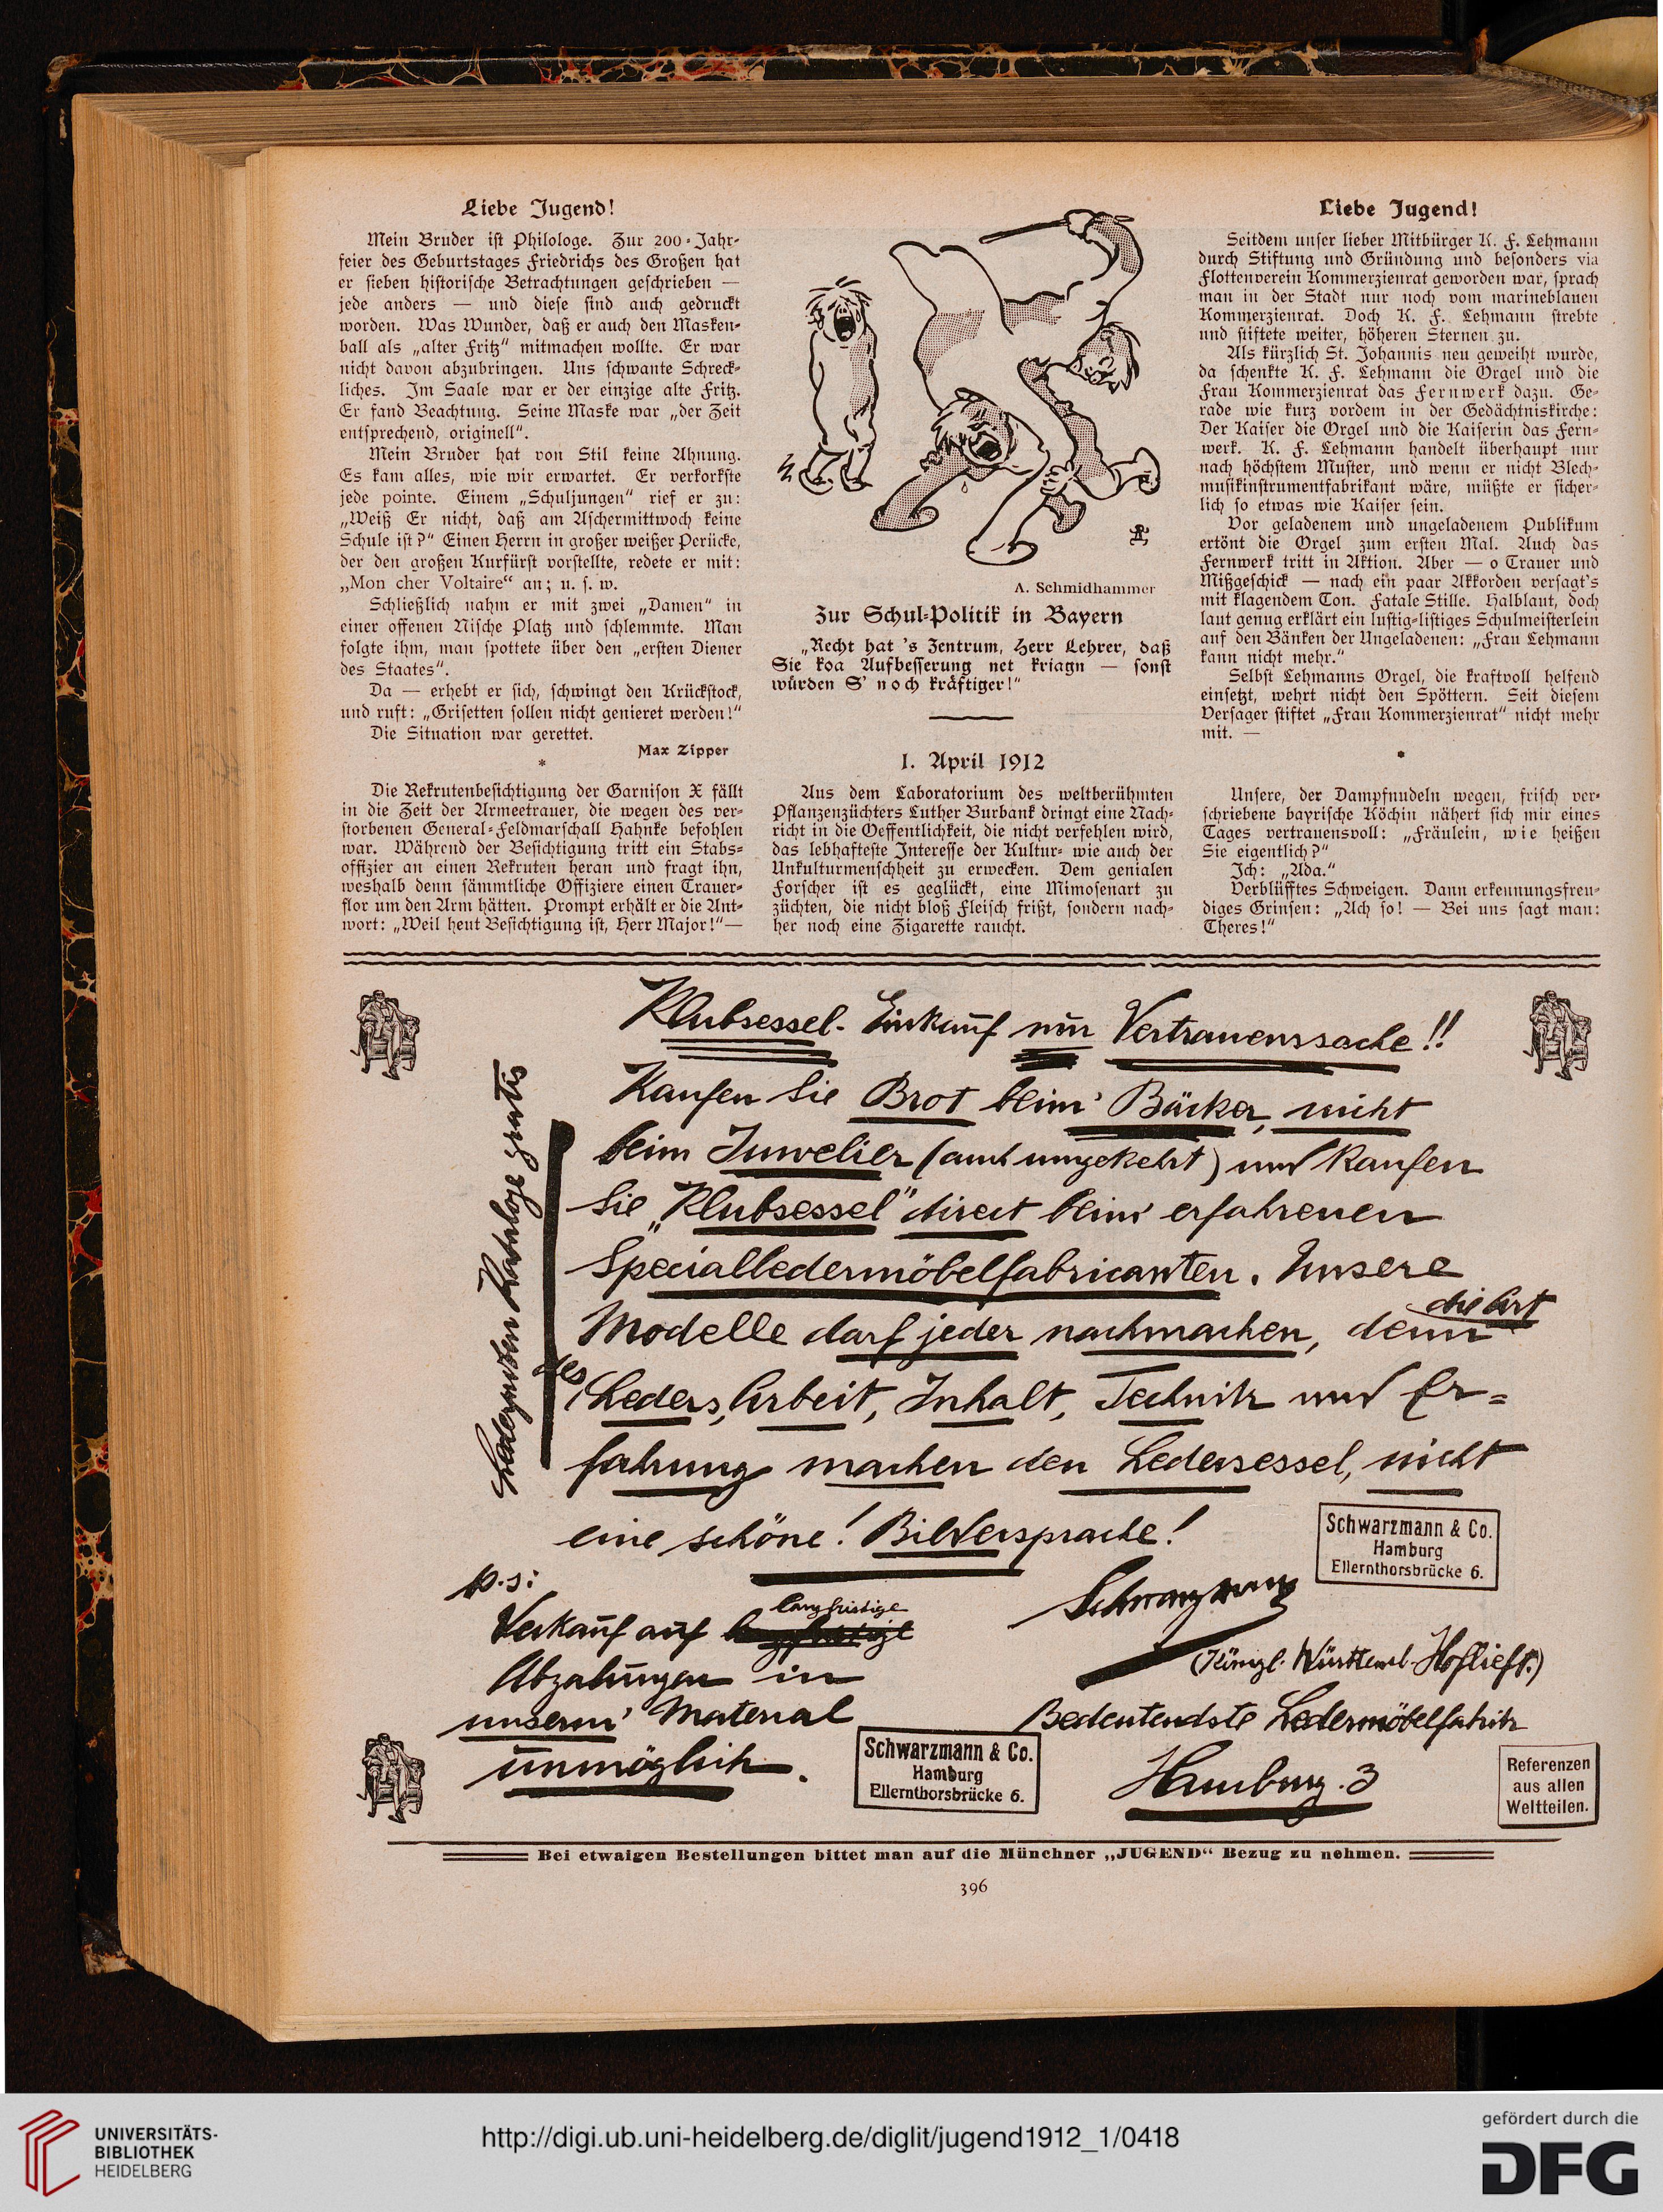 Liebe Jugend!
Mein Bruder ist Philologe. Zur 200-Jahr-
feier des Geburtstages Friedrichs des Großen hat
er sieben historische Betrachtungen geschrieben —
jede anders — und diese sind auch gedruckt
worden. Was Wunder, daß er auch den Masken-
ball als „alter Fritz“ mitmachen wollte. Er war
nicht davon abzubringen. Uns schwante Schreck-
liches. Im Saale war er der einzige alte Fritz.
Er fand Beachtung. Seine Maske war „der Zeit
entsprechend, originell“.
Mein Bruder hat von Stil keine Ahnung.
Es kam alles, wie wir erwartet. Er verkorkste
jede pointe. Einem „Schuljungen“ rief er zu:
„Weiß Er nicht, daß am Aschermittwoch keine
Schule ist?“ Einen Herrn in großer weißer Perücke,
der den großen Kurfürst vorstellte, redete er mit:
„Mon cher Voltaire“ an; u. s. w.
Schließlich nahm er mit zwei „Damen“ in
einer offenen Nische Platz und schlemmte. Man
folgte ihm, man spottete über den „ersten Diener
des Staates“.
Da — erhebt er sich, schwingt den Krückstock,
und ruft: „Grisetten sollen nicht genieret werden!“
Die Situation war gerettet.
Max Zipper
*
Die Rekrutenbesichtigung der Garnison X fällt
in die Zeit der Armeetrauer, die wegen des ver-
storbenen General-Feldmarschall Hahnke befohlen
war. Während der Besichtigung tritt ein Stabs-
offizier an einen Rekruten heran und fragt ihn,
weshalb denn sämmtliche Offiziere einen Trauer-
flor um den Arm hätten. Prompt erhält er die Ant-
wort: „Weil heut Besichtigung ist, Herr Major!“—
A. Schmidhammer
Zur Schul-Politik in Bayern
„Recht hat 's Zentrum, Herr Lehrer, daß
Sie koa Aufbesserung net kriagn — sonst
würden S' noch kräftiger!“
1. April 1912
Aus dem Laboratorium des weltberühmten
Pflanzenzüchters Luther Burbank dringt eine Nach-
richt in die Oeffentlichkeit, die nicht verfehlen wird,
das lebhafteste Interesse der Kultur- wie auch der
Unkulturmenschheit zu erwecken. Dem genialen
Forscher ist es geglückt, eine Mimosenart zu
züchten, die nicht bloß Fleisch frißt, sondern nach-
her noch eine Zigarette raucht.
Liebe Jugend!
Seitdem unser lieber Mitbürger K. F. Lehmann
durch Stiftung und Gründung und besonders via
Flottenverein Kommerzienrat geworden war, sprach
man in der Stadt nur noch vom marineblauen
Kommerzienrat. Doch K. F. Lehmann strebte
und stiftete weiter, höheren Sternen zu.
Als kürzlich St. Johannis neu geweiht wurde,
da schenkte K. F. Lehmann die Orgel und die
Frau Kommerzienrat das Fernwerk dazu. Ge-
rade wie kurz vordem in der Gedächtniskirche:
Der Kaiser die Orgel und die Kaiserin das Fern-
werk. K. F. Lehmann handelt überhaupt nur
nach höchstem Muster, und wenn er nicht Blech-
musikinstrumentfabrikant wäre, müßte er sicher-
lich so etwas wie Kaiser sein.
Vor geladenem und ungeladenem Publikum
ertönt die Orgel zum ersten Mal. Auch das
Fernwerk tritt in Aktion. Aber — o Trauer und
Mißgeschick — nach ein paar Akkorden versagt's
mit klagendem Ton. Fatale Stille. Halblaut, doch
laut genug erklärt ein lustig-listiges Schulmeisterlein
auf den Bänken der Ungeladenen: „Frau Lehmann
kann nicht mehr.“
Selbst Lehmanns Orgel, die kraftvoll helfend
einsetzt, wehrt nicht den Spöttern. Seit diesem
Versager stiftet „Frau Kommerzienrat“ nicht mehr
mit. —
*
Unsere, der Dampfnudeln wegen, frisch ver-
schriebene bayrische Köchin nähert sich mir eines
Tages vertrauensvoll: „Fräulein, wie heißen
Sie eigentlich?“
Ich: „Ada.“
Verblüfftes Schweigen. Dann erkennungsfreu-
diges Grinsen: „Ach so! — Bei uns sagt man:
Theres!“
Klubsessel-Einkauf nur Vertrauenssache!!
Kaufen Sie Brot beim Bäcker, nicht
beim Juwelier (auch umgekehrt) und kaufen
Sie „Klubsessel“ direct beim erfahrenen
Specialledermöbelfabricanten. Unsere
Modelle darf jeder nachmachen, denn die Art
des Leders, Arbeit, Inhalt, Technik und Er=
fahrung machen den Ledersessel, nicht
eine schöne! Bildersprache!
Lederproben Kataloge gratis
P.S:
Verkauf auf langfristige
Abzahlungen in
unserm Material
unmöglich.
Schwarzmann & Co.
Hamburg
Ellernthorsbrücke 6.
Schwarzmann
(Königl. Württemb. Hoflieft.)
Bedeutendste Ledermöbelfabrik
Hamburg. 3
Schwarzmann & Co.
Hamburg
Ellernthorsbrücke 6.
Referenzen
aus allen
Weltteilen.
Bei etwaigen Bestellungen bittet man auf die Münchner „JUGEND“ Bezug zu nehmen.
396
UNIVERSITÄTS-
BIBLIOTHEK
HEIDELBERG
http://digi.ub.uni-heidelberg.de/diglit/jugend1912_1/0418
gefördert durch die
DFG